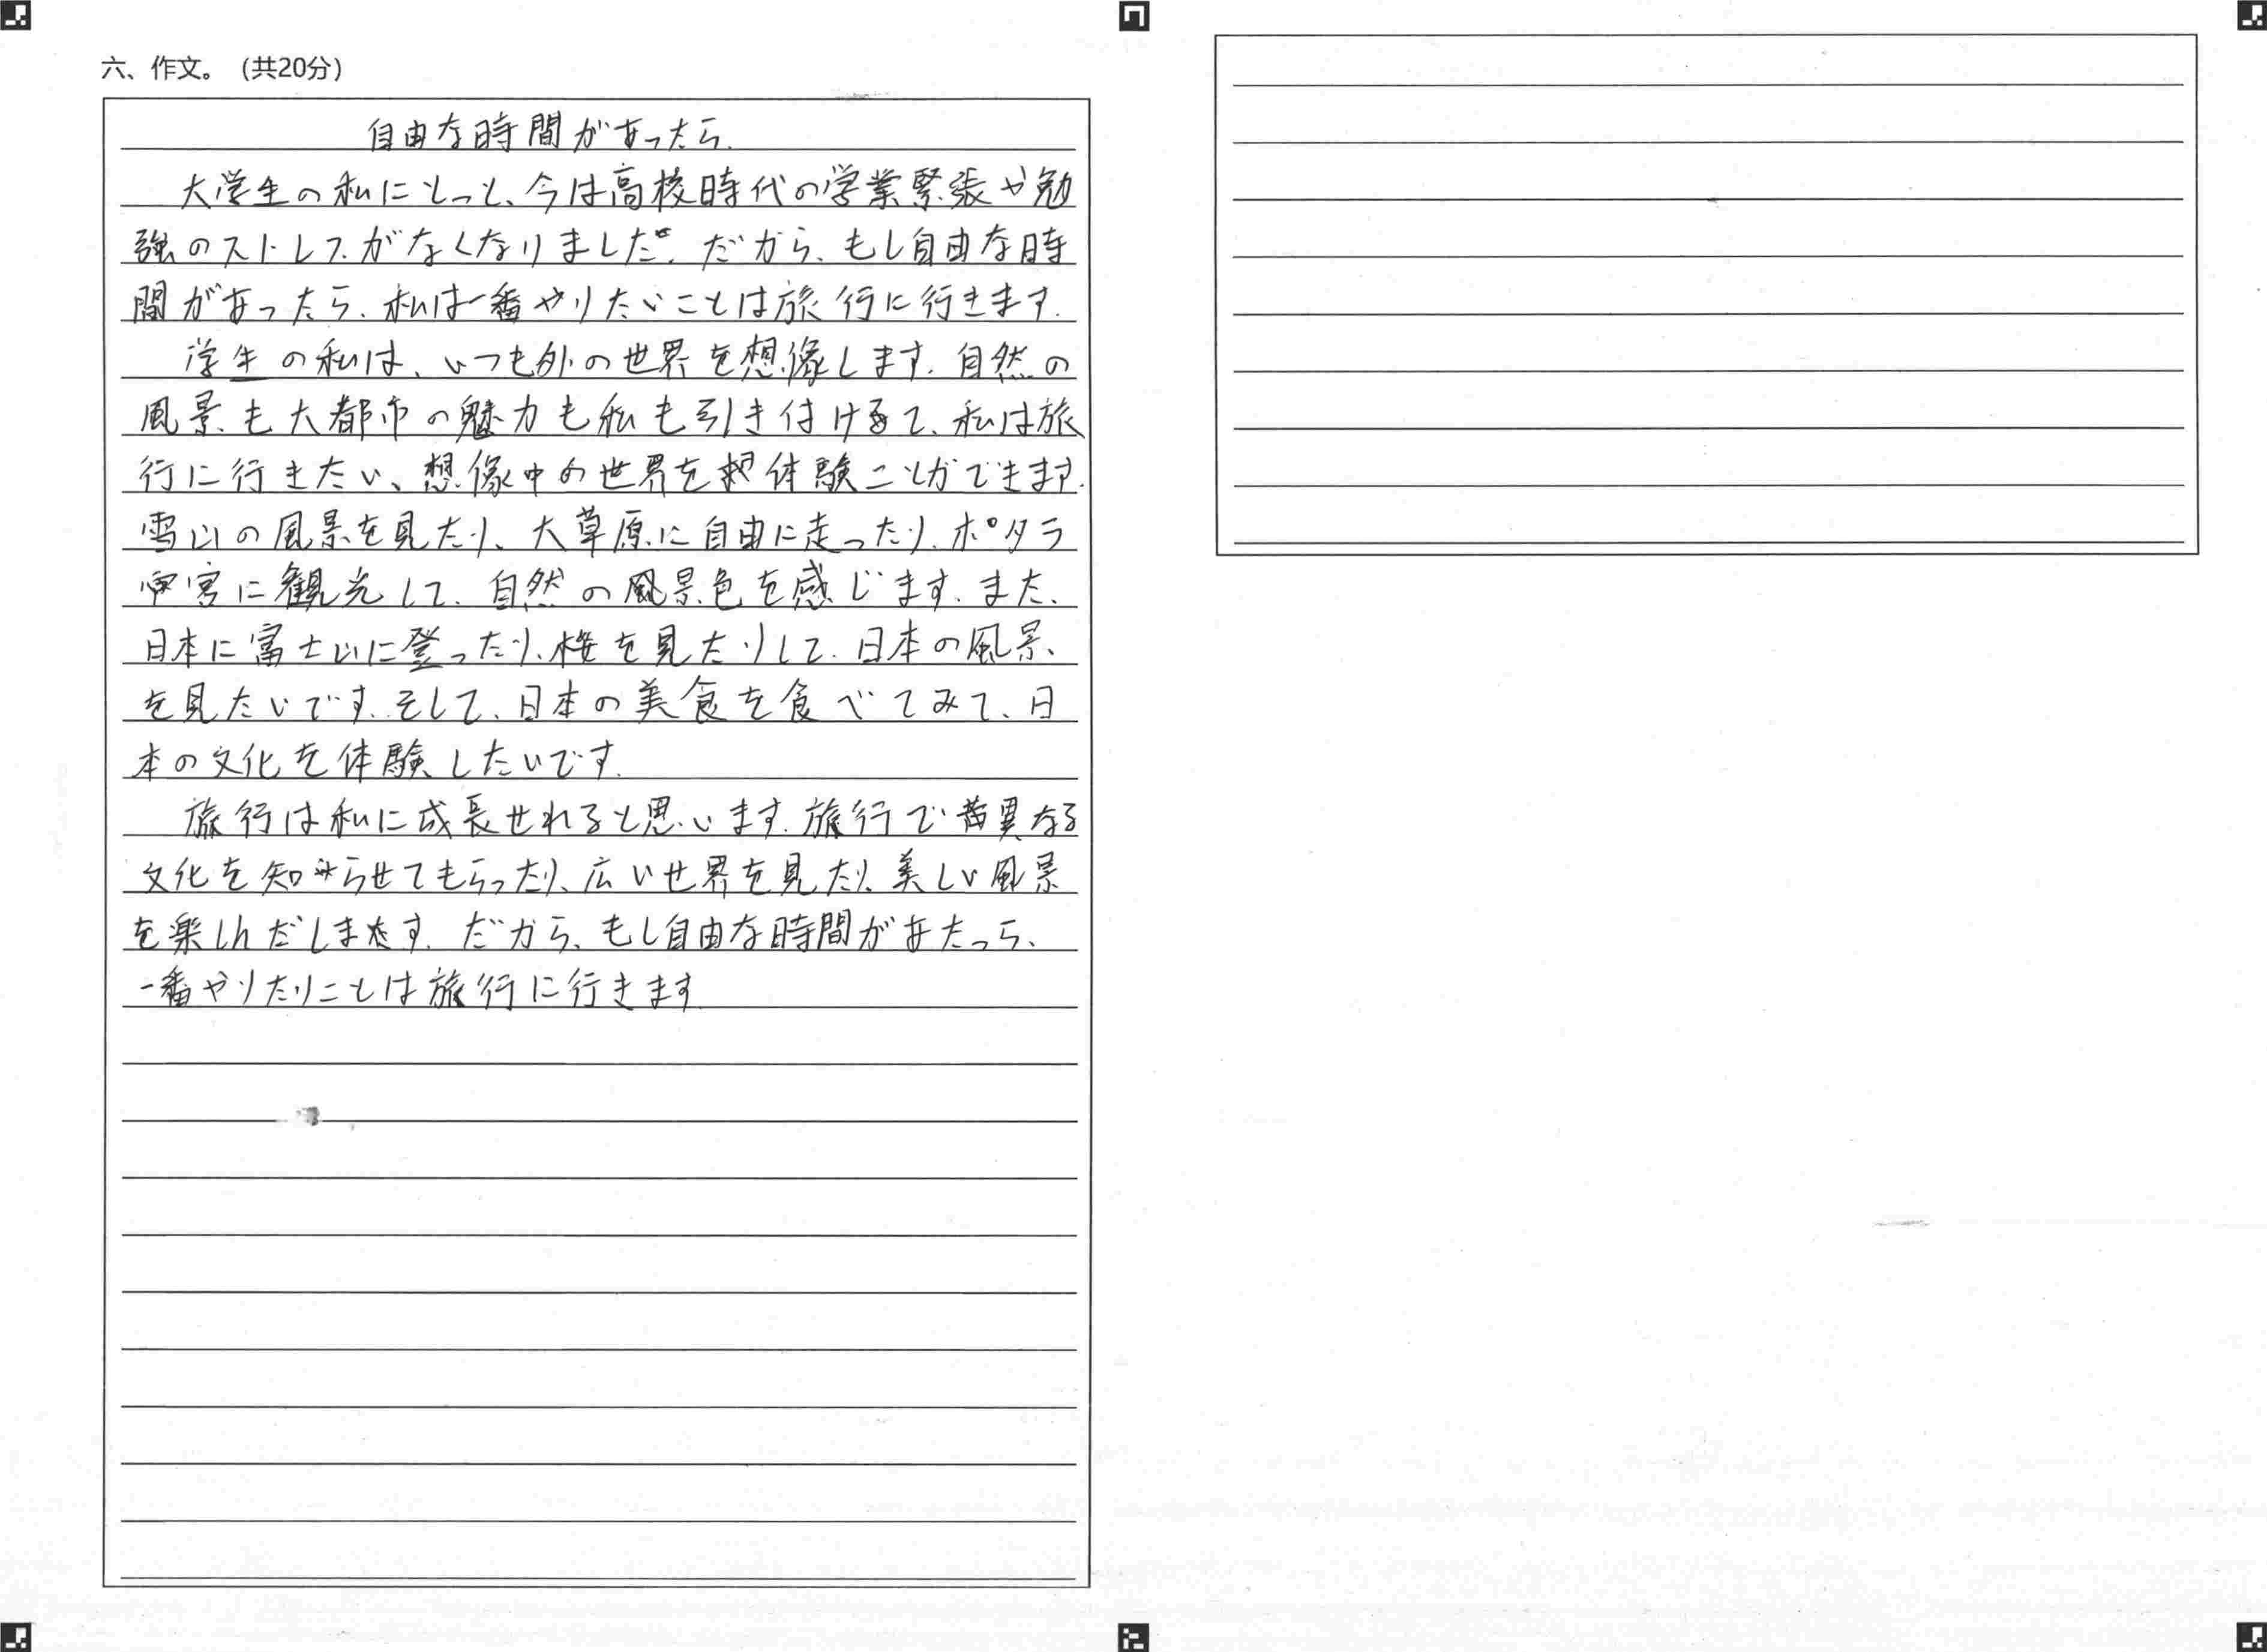 六、作文。(共20分)
自由な時間があったら.
大学生の私にとっと、今は高校時代の学業緊張や勉
強のストレスがなくなりました。だから、もし自由な時
間があったら、私は一番やりたいことは旅行に行きます.
学生の私は、いつも外の世界を想像します.自然の
風景も大都市の魅力も私も引き付けるて、私は旅
行に行きたい、想像中の世界を体験ことができます.
雪山の風景を見たり、大草原に自由に走ったり、ポタラ
宮に観光して、自然の風景色を感じます.また、
日本に富士山に登ったり、桜を見たりして、日本の風景、
を見たいです.そして、日本の美食を食べてみて、日
本の文化を体験したいです.
旅行は私に成長せれると思います.旅行で異なる
文化を知らせてもらったり、広い世界を見たり、美しい風景
を楽しんだします.だから、もし自由な時間があたっら、
一番やりたりことは旅行に行きます.